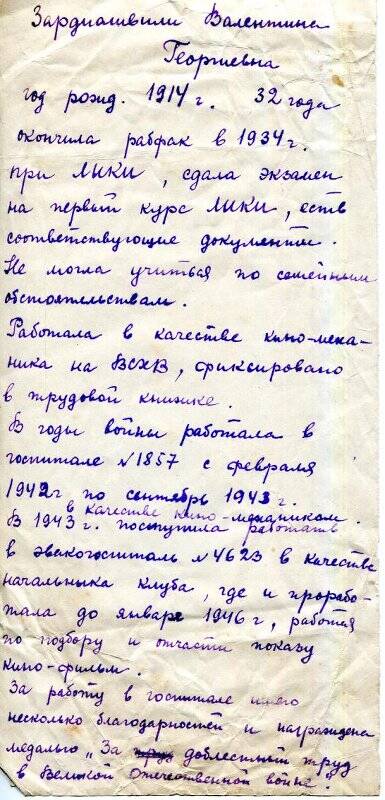 Зардиашвили Валентина
Георгиевна
год рожд. 1914 г. 32 года
окончила рабфак в 1934 г.
при ЛИКИ, сдала экзамен
на первый курс ЛИКИ, есть
соответствующие документы.
Не могла учиться по семейным
обстоятельствам.
Работала в качестве кино-меха-
ника на ВСХВ, фиксировано
в трудовой книжке.
В годы войны работала в
госпитале №1857 с февраля
1942 г по сентябрь 1943 г.
в качестве кино-механиком.
В 1943 г. поступила работать
в эвакогоспиталь №4623 в качестве
начальника клуба, где и прорабо-
тала до января 1946 г, работая
по подбору и отчасти показу
кино-фильм.
За работу в госпитале имею
несколько благодарностей и награждена
медалью „За труд доблестный труд
в Великой Отечественной войне".